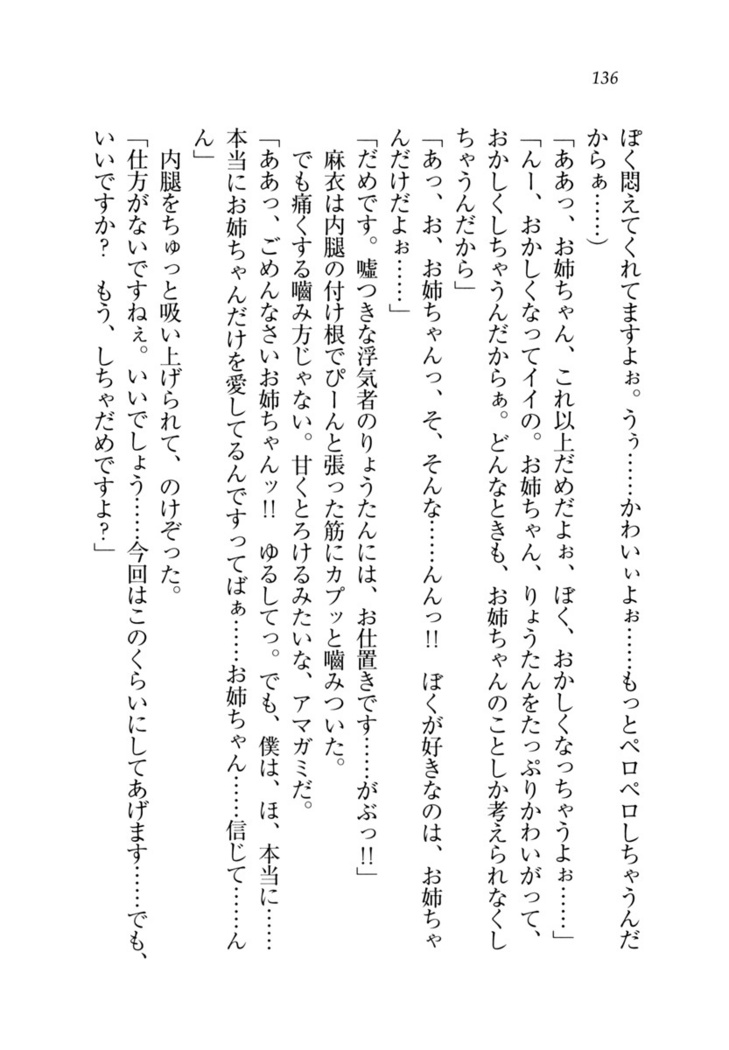 136
ぽく悶えてくれてますよぉ。うぅ……かわいぃよぉ……もっとペロペロしちゃうんだ
からぁ……)
「ああっ、お姉ちゃん、これ以上だめだよぉ、ぼく、おかしくなっちゃうよぉ……」
「んー、おかしくなってイイの。お姉ちゃん、りょうたんをたっぷりかわいがって、
おかしくしちゃうんだからぁ。どんなときも、お姉ちゃんのことしか考えられなくし
ちゃうんだから」
「あっ、お、お姉ちゃんっ、そ、そんな……んんっ!!　ぼくが好きなのは、お姉ちゃ
んだけだよぉ……」
「だめです。嘘つきな浮気者のりょうたんには、お仕置きです……がぶっ!!」
　麻衣は内腿の付け根でぴーんと張った筋にカプッと嚙みついた。
　でも痛くする嚙み方じゃない。甘くとろけるみたいな、アマガミだ。
「ああっ、ごめんなさいお姉ちゃんッ!!　ゆるしてっ。でも、僕は、ほ、本当に……
本当にお姉ちゃんだけを愛してるんですってばぁ……お姉ちゃん……信じて……ん
ん」
　内腿をちゅっと吸い上げられて、のけぞった。
「仕方がないですねぇ。いいでしょう……今回はこのくらいにしてあげます……でも、
いいですか?　もう、しちゃだめですよ?」